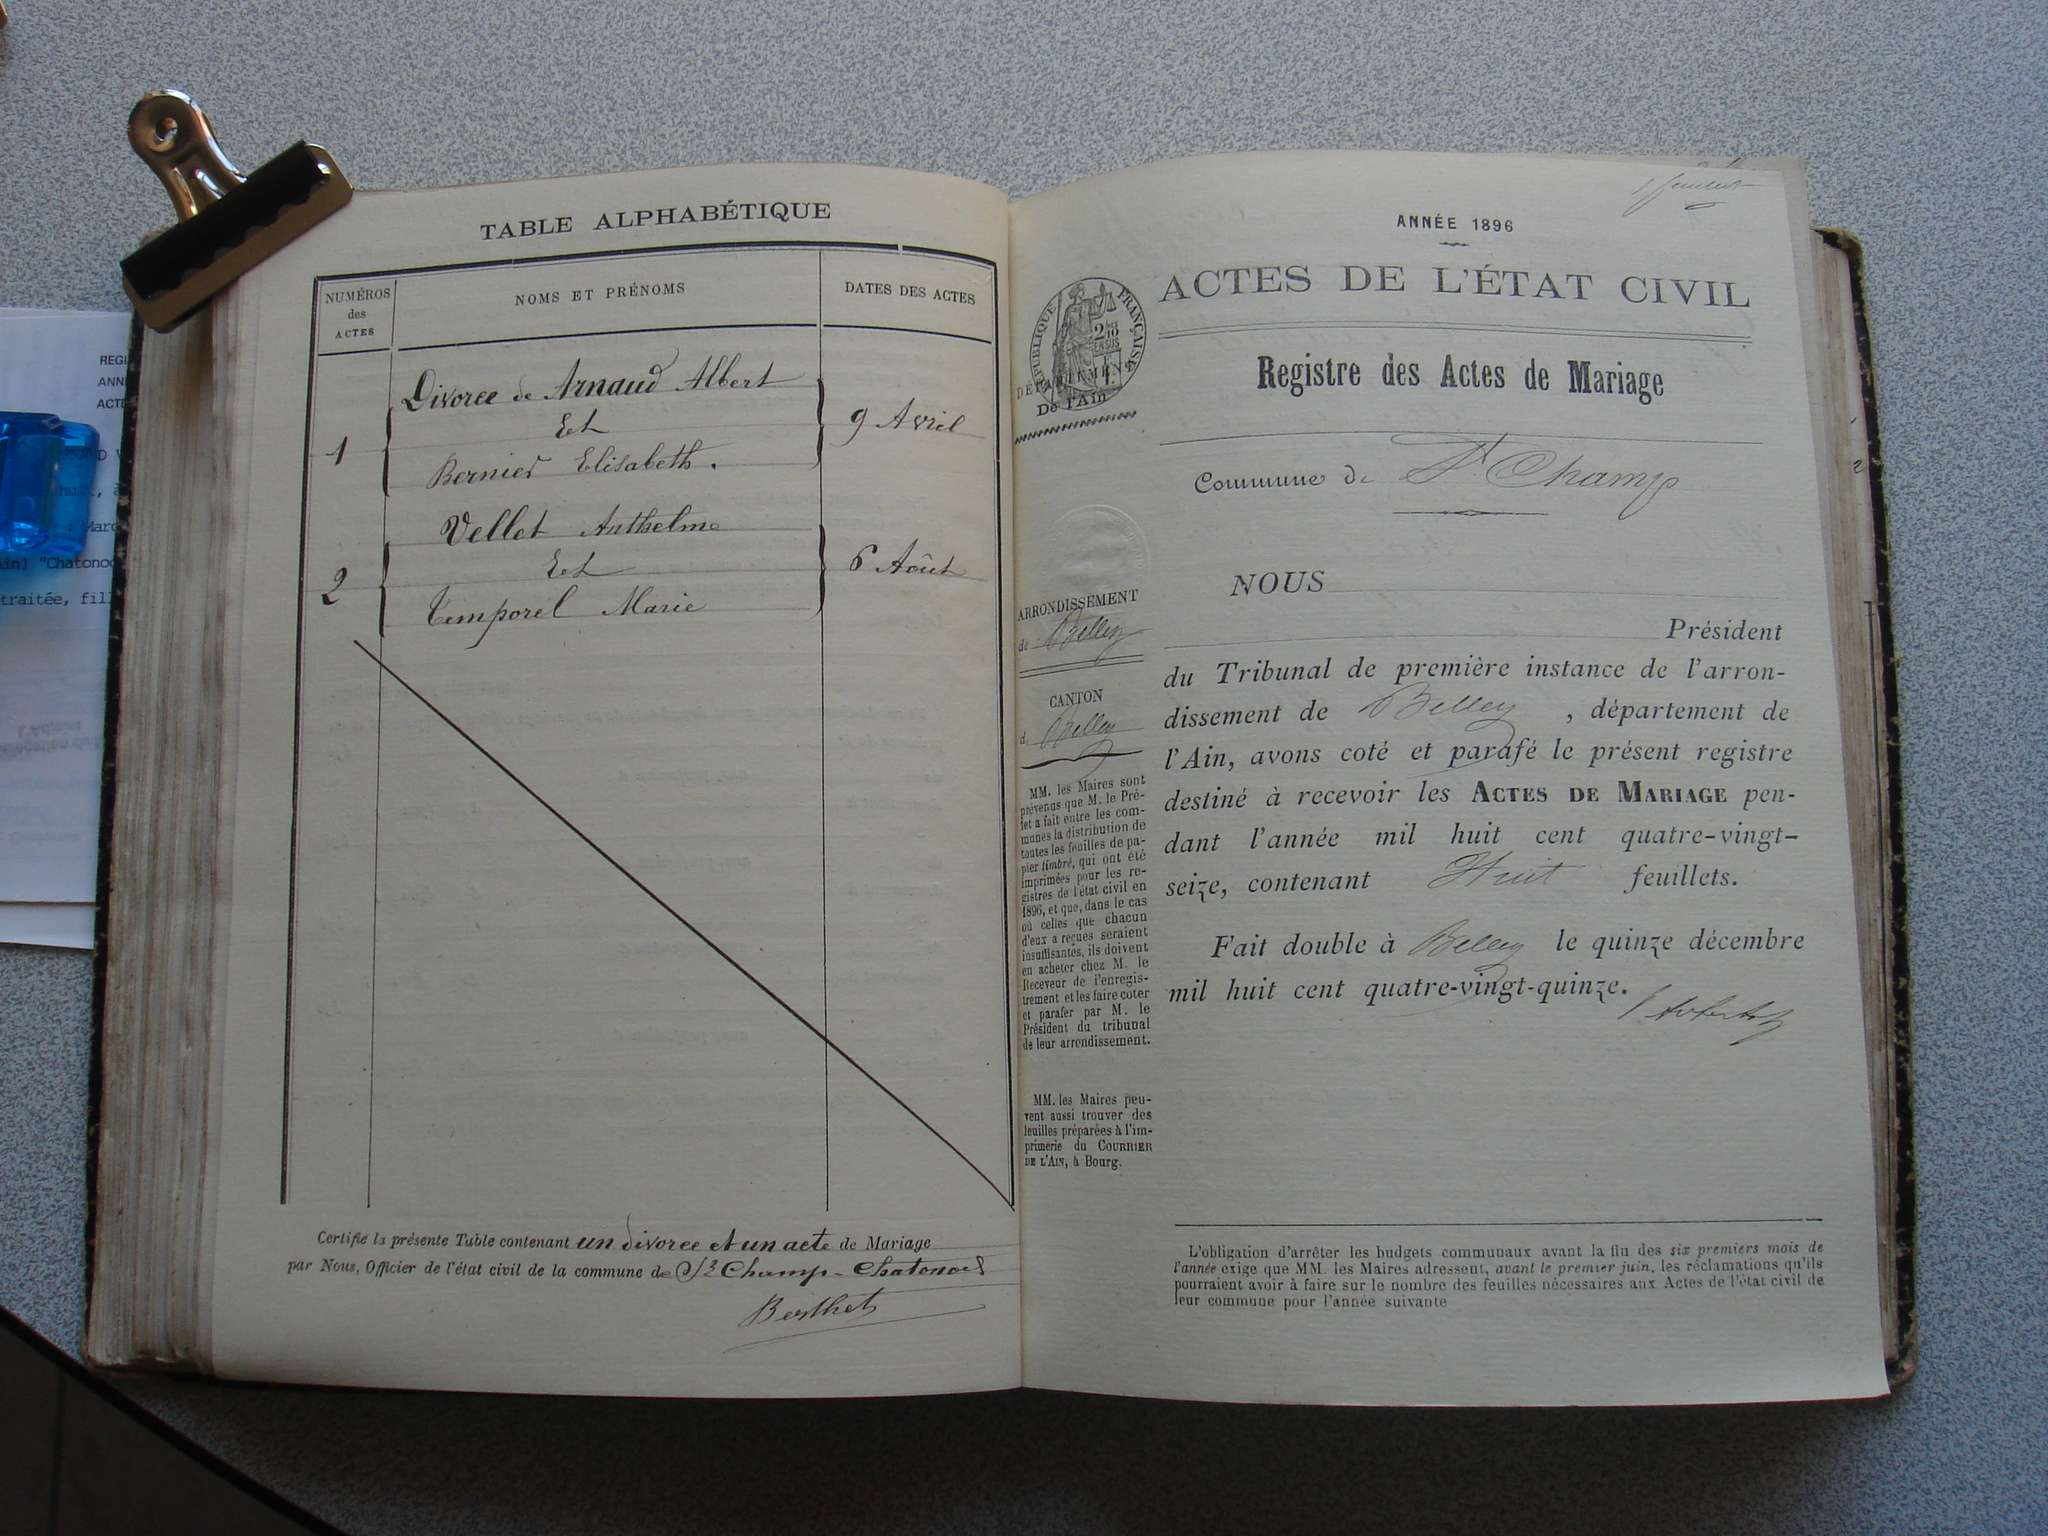 TABLE ALPHABÉTIQUE
NUMÉROS des ACTES
NOMS ET PRÉNOMS
DATES DES ACTES
1
Divorce de Arnaud Albert
Et
Bernier Elisabeth.
9 Avril
2
Vellet Anthelme
Et
Temporel Marie
6 Août
Certifie la présente Table contenant un divorce et un acte de Mariage
par Nous, Officier de l'état civil de la commune de St Champ-Chatonod
Berthet
1er feuillet
ANNÉE 1896
ACTES DE L'ÉTAT CIVIL
RÉPUBLIQUE FRANÇAISE
DÉPARTEMENT
De l'Ain
Registre des Actes de Mariage
Commune de St Champ
ARRONDISSEMENT
de Belley
CANTON
d Belley
MM. les Maires sont
prévenus que M. le Pré-
fet a fait entre les com-
munes la distribution de
toutes les feuilles de pa-
pier timbré, qui ont été
imprimées pour les re-
gistres de l'état civil en
1896, et que, dans le cas
où celles que chacun
d'eux a reçues seraient
insuffisantes, ils doivent
en acheter chez M. le
Receveur de l'enregis-
trement et les faire coter
et parafer par M. le
Président du tribunal
de leur arrondissement.
MM. les Maires peu-
vent aussi trouver des
feuilles préparées à l'im-
primerie du COURRIER
DE L'AIN, à Bourg.
NOUS
Président
du Tribunal de première instance de l'arron-
dissement de Belley, département de
l'Ain, avons coté et parafé le présent registre
destiné à recevoir les ACTES DE MARIAGE pen-
dant l'année mil huit cent quatre-vingt-
seize, contenant Huit feuillets.
Fait double à Belley le quinze décembre
mil huit cent quatre-vingt-quinze.
L'obligation d'arrêter les budgets communaux avant la fin des six premiers mois de
l'année exige que MM. les Maires adressent, avant le premier juin, les réclamations qu'ils
pourraient avoir à faire sur le nombre des feuilles nécessaires aux Actes de l'état civil de
leur commune pour l'année suivante